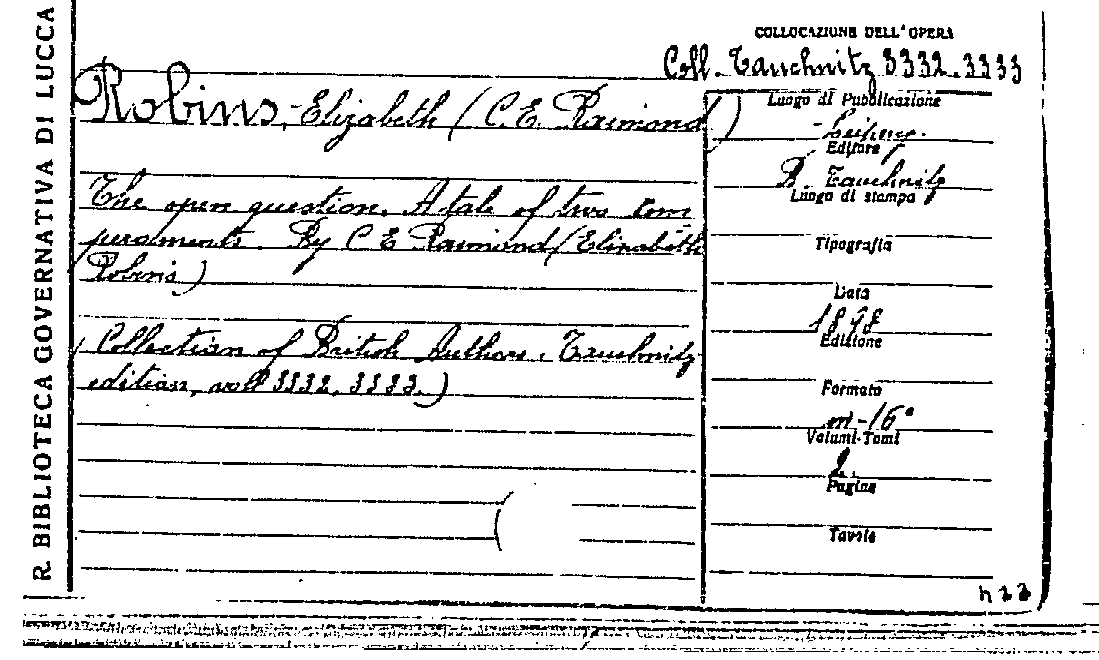 R. BIBLIOTECA GOVERNATIVA DI LUCCA
COLLOCAZIONE DELL'OPERA
Coll. Tauchnitz 3332.3333
Robins, Elizabeth (C. E. Raimond)
The open question. A tale of two tem
peraments. By C E Raimond (Elizabeth
Robins)
(Collection of British Authors. Tauchnitz
edition, voll 3332, 3333.)
Luogo di Pubblicazione
Leipzig.
Editore
B. Tauchnitz
Luogo di stampa
Tipografia
Data
1898
Edizione
Formato
m-16°
Volumi-Tomi
2.
Pagine
Tavole